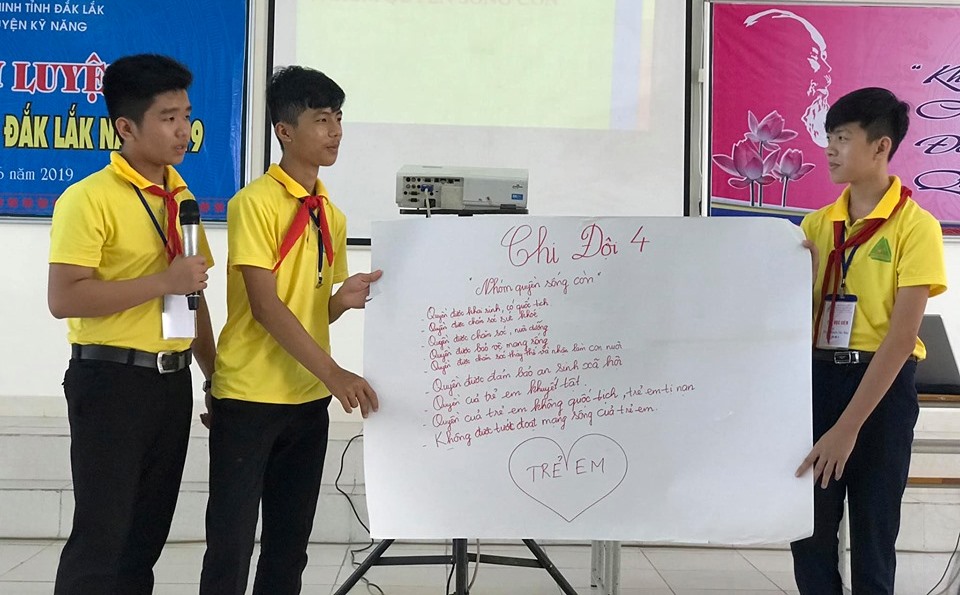 TỈNH ĐẮK LẮK
KỸ NĂNG
LUYỆ
ĐẮK LẮK NĂ 9
6 năm 2019
"Kh
Chi Đội 4
"Nhóm quyền sống còn"
- Quyền được khai sinh, có quốc tịch
- Quyền được chăm sóc sức khoẻ
- Quyền được chăm sóc, nuôi dưỡng
- Quyền được bảo vệ mạng sống
- Quyền được chăm sóc thay thế và nhận làm con nuôi
- Quyền được đảm bảo an sinh xã hội
- Quyền của trẻ em khuyết tật.
- Quyền của trẻ em không quốc tịch, trẻ em tị nạn
- Không được tước đoạt mạng sống của trẻ em.
TRẺ EM